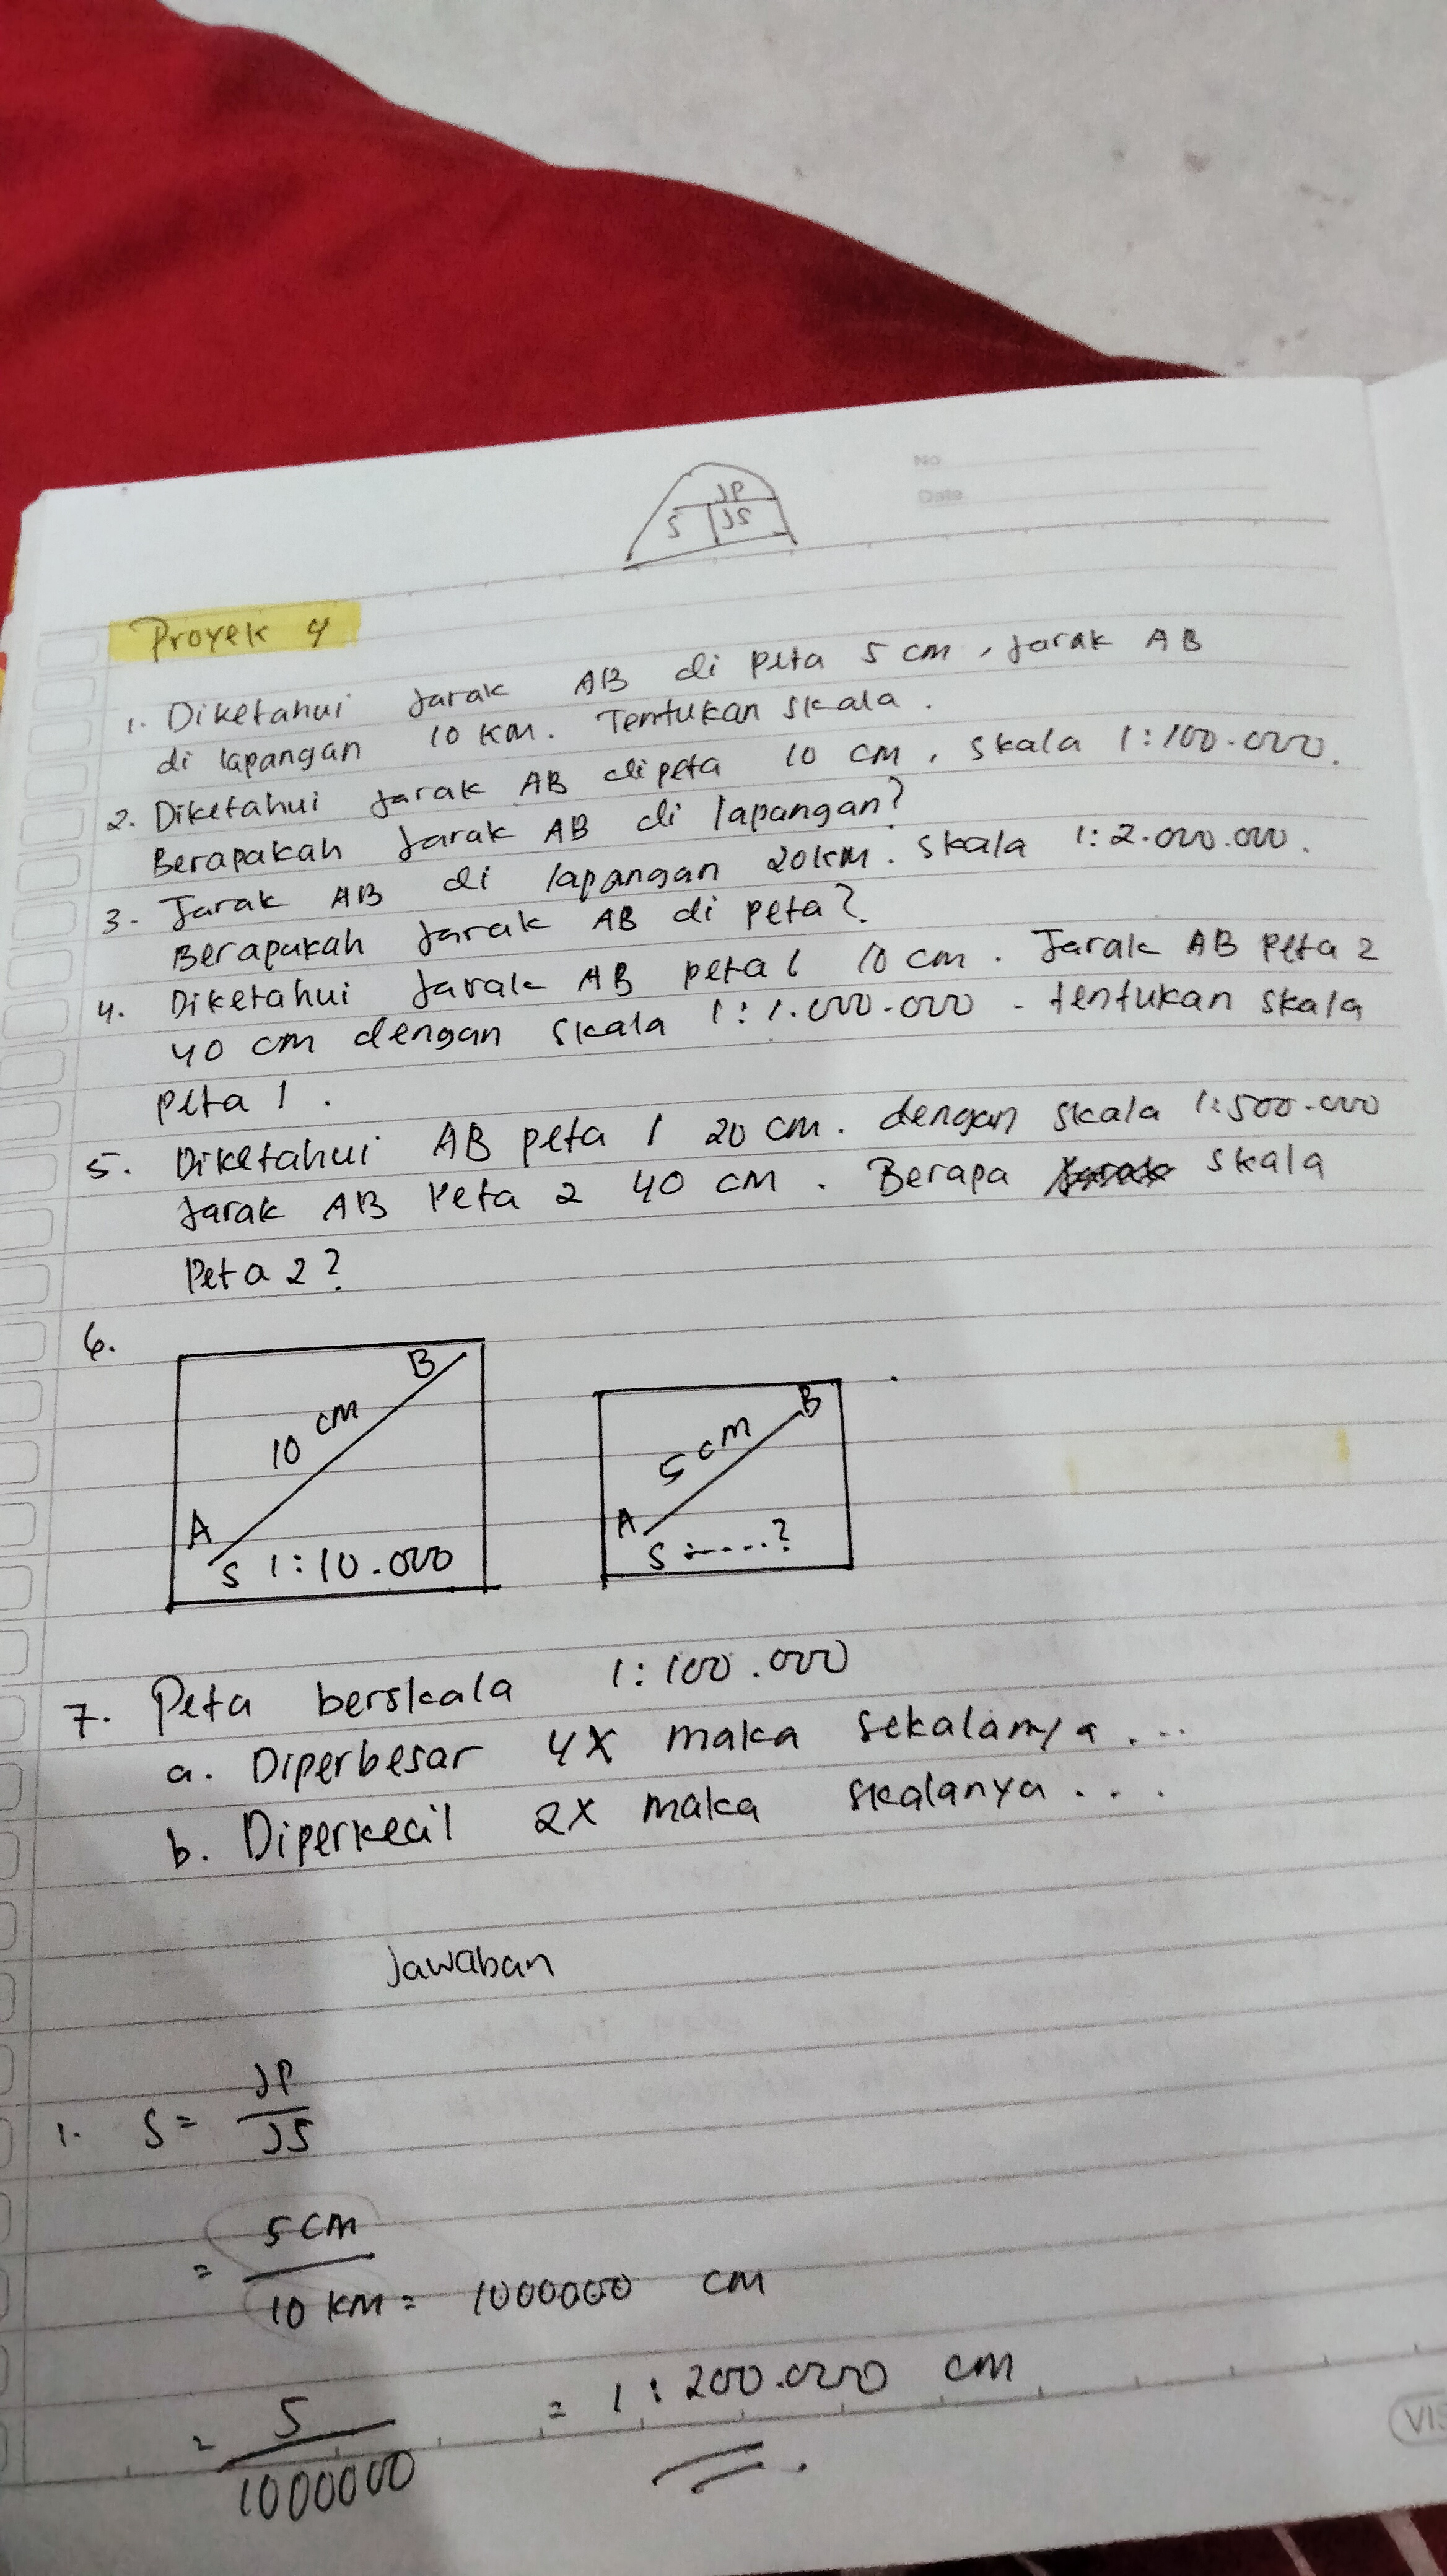 No
Date
JP
S JS
Proyek 4
1. Diketahui Jarak AB di peta 5 cm, Jarak AB
di lapangan 10 KM. Tentukan skala.
2. Diketahui Jarak AB di peta 10 cm, skala 1:100.000.
Berapakah Jarak AB di lapangan?
3. Jarak AB di lapangan 20 km. Skala 1:2.000.000.
Berapakah Jarak AB di peta?
4. Diketahui Jarak AB peta 1 10 cm. Jarak AB Peta 2
40 cm dengan skala 1:1.000.000. tentukan skala
peta 1.
5. Diketahui AB peta 1 20 cm. dengan skala 1:500.000
Jarak AB Peta 2 40 cm. Berapa skala
Peta 2?
6.
B
10 cm
A
S 1:10.000
B
5 cm
A
S :.....?
7. Peta berskala 1:100.000
a. Diperbesar 4X maka sekalanya...
b. Diperkecil 2X maka skalanya...
Jawaban
1. S = JP
JS
= 5 cm
10 KM = 1000000 cm
= 5
1000000
= 1:200.000 cm
VIS